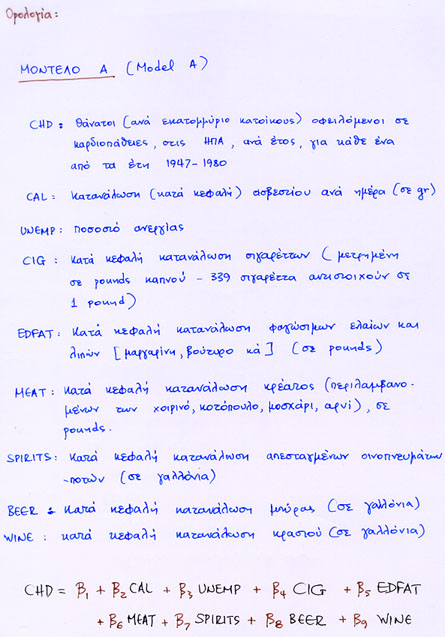 Ορολογία:
ΜΟΝΤΕΛΟ Α (Model A)
CHD: θάνατοι (ανά εκατομμύριο κατοίκους) οφειλόμενοι σε
καρδιοπάθειες, στις ΗΠΑ, ανά έτος, για κάθε ένα
από τα έτη 1947-1980
CAL: κατανάλωση (κατά κεφαλή) ασβεστίου ανά ημέρα (σε gr)
UNEMP: ποσοσιό ανεργίας
CIG: κατά κεφαλή κατανάλωση σιγαρέττων (μετρημένη
σε pounds καπνού - 339 σιγαρέττα αντιστοιχούν σε
1 pound)
EDFAT: κατά κεφαλή κατανάλωση φαγώσιμων ελαίων και
λιπών [μαργαρίνη, βούτυρο κά] (σε pounds)
MEAT: κατά κεφαλή κατανάλωση κρέατος (περιλαμβανο-
μένων των χοιρινό, κοτόπουλο, μοσχάρι, αρνί), σε
pounds.
SPIRITS: κατά κεφαλή κατανάλωση απεσταγμένων οινοπνευμάτων
-ποτών (σε γαλλόνια)
BEER: κατά κεφαλή κατανάλωση μπύρας (σε γαλλόνια)
WINE: κατά κεφαλή κατανάλωση κρασιού (σε γαλλόνια)
CHD = β1 + β2 CAL + β3 UNEMP + β4 CIG + β5 EDFAT
+ β6 MEAT + β7 SPIRITS + β8 BEER + β9 WINE